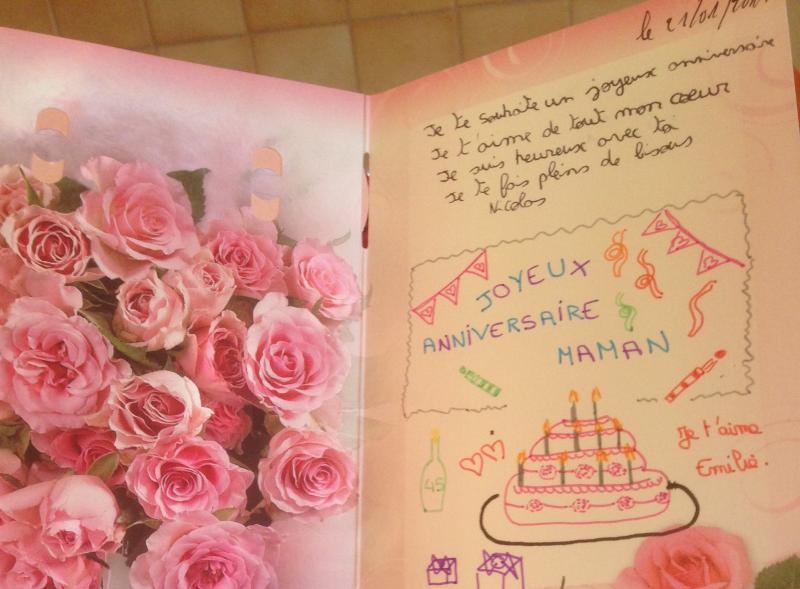 le 21/01/201
Je te souhaite un joyeux anniversaire
Je t'aime de tout mon coeur
Je suis heureux avec toi
Je te fais pleins de bisous
Nicolas
JOYEUX
ANNIVERSAIRE
MAMAN
Je t'aime
Emilie.
45